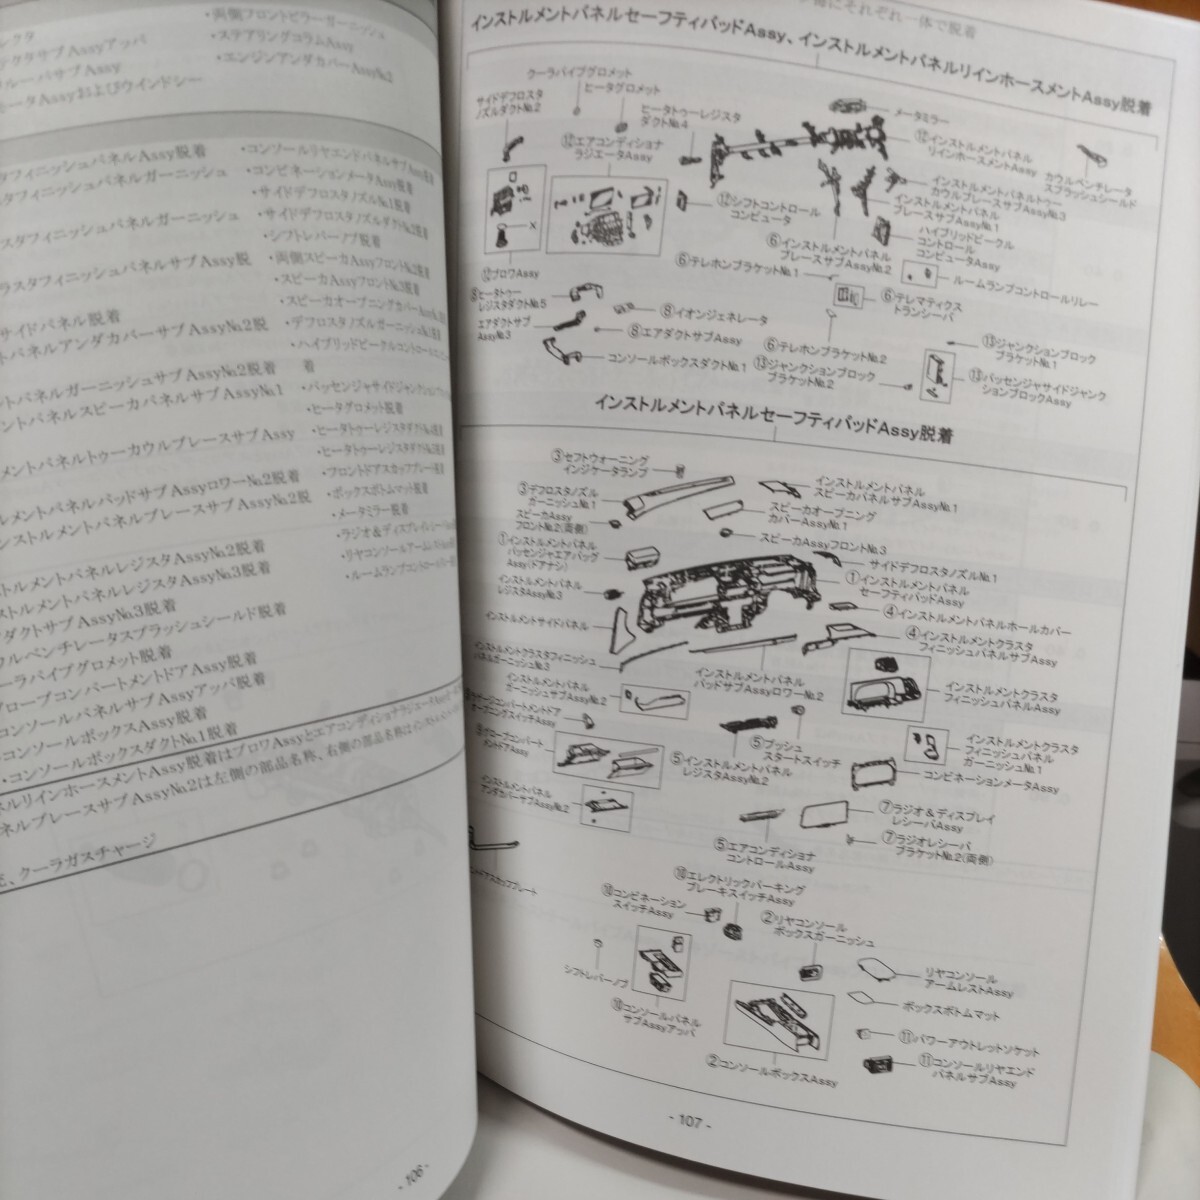 ・両側フロントピラーガーニッシュ
・ステアリングコラムAssy
・エンジンアンダカバーAssy№2
サブAssyアッパ
ルーバサブAssy
ータAssyおよびウインドシー
タフィニッシュパネルAssy脱着
タフィニッシュパネルガーニッシュ
スタフィニッシュパネルガーニッシュ
ラスタフィニッシュパネルサブAssy脱
サイドパネル脱着
トパネルアンダカバーサブAssy№2脱
ントパネルガーニッシュサブAssy№2脱着
ントパネルスピーカパネルサブAssy№1
メントパネルトゥーカウルブレースサブAssy
ルメントパネルパッドサブAssyロワー№2脱着
ンストルメントパネルブレースサブAssy№2脱
トルメントパネルレジスタAssy№2脱着
ストルメントパネルレジスタAssy№3脱着
ダクトサブAssy№3脱着
ウルベンチレータスプラッシュシールド脱着
ーラパイプグロメット脱着
グローブコンパートメントドアAssy脱着
コンソールパネルサブAssyアッパ脱着
コンソールボックスAssy脱着
・コンソールボックスダクト№1脱着
・コンソールリヤエンドパネルサブAssy脱着
・コンビネーションメータAssy脱着
・サイドデフロスタノズル№1脱着
・サイドデフロスタノズルダクト№2脱着
・シフトレバーノブ脱着
・両側スピーカAssyフロント№2脱着
・スピーカAssyフロント№3脱着
・スピーカオープニングカバーAssy№1脱
・デフロスタノズルガーニッシュ№1脱着
・ハイブリッドビークルコントロールコン
着
・パッセンジャサイドジャンクション
・ヒータグロメット脱着
・ヒータトゥーレジスタダクト
・ヒータトゥーレジスタダクト
・フロントドアスカッフプレート脱着
・ボックスボトムマット脱着
・メータミラー脱着
・ラジオ＆ディスプレイレシーバ
・リヤコンソールアームレストAssy
・ルームランプコントロールリレー
ネルリインホースメントAssy脱着はブロワAssyとエアコンディショナラジエータAssy
ネルブレースサブAssy№2は左側の部品名称、右側の部品名称はインストルメント
、クーラガスチャージ
- 106 -
それぞれ一体で脱着
インストルメントパネルセーフティパッドAssy、インストルメントパネルリインホースメントAssy脱着
クーラパイプグロメット
ヒータグロメット
サイドデフロスタ
ノズルダクト№2
ヒータトゥーレジスタ
ダクト№4
メータミラー
⑫エアコンディショナ
ラジエータAssy
⑫インストルメントパネル
リインホースメントAssy
カウルベンチレータ
スプラッシュシールド
インストルメントパネルトゥー
カウルブレースサブAssy№3
インストルメントパネル
ブレースサブAssy№1
⑫シフトコントロール
コンピュータ
ハイブリッドビークル
コントロール
コンピュータAssy
⑥インストルメントパネル
ブレースサブAssy№2
×
⑫ブロワAssy
⑥テレホンブラケット№1
ルームランプコントロールリレー
⑥テレマティクス
トランシーバ
⑧ヒータトゥー
レジスタダクト№5
⑧イオンジェネレータ
エアダクトサブ
Assy№3
⑧エアダクトサブAssy
⑥テレホンブラケット№2
⑬ジャンクションブロック
ブラケット№1
コンソールボックスダクト№1
⑬ジャンクションブロック
ブラケット№2
⑬パッセンジャサイドジャンク
ションブロックAssy
インストルメントパネルセーフティパッドAssy脱着
③セフトウォーニング
インジケータランプ
インストルメントパネル
スピーカパネルサブAssy№1
③デフロスタノズル
ガーニッシュ№1
スピーカオープニング
カバーAssy№1
スピーカAssy
フロント№2(両側)
スピーカAssyフロント№3
①インストルメントパネル
パッセンジャエアバッグ
Assy(ドアナシ)
サイドデフロスタノズル№1
①インストルメントパネル
セーフティパッドAssy
インストルメントパネル
レジスタAssy№3
④インストルメントパネルホールカバー
インストルメントサイドパネル
④インストルメントクラスタ
フィニッシュパネルサブAssy
インストルメントクラスタフィニッシュ
パネルガーニッシュ№3
インストルメントパネル
パッドサブAssyロワー№2
インストルメントクラスタ
フィニッシュパネルAssy
インストルメントパネル
ガーニッシュサブAssy№2
ラゲージコンパートメントドア
オープニングスイッチAssy
⑤プッシュ
スタートスイッチ
インストルメントクラスタ
フィニッシュパネル
ガーニッシュ№1
グローブコンパート
メントドアAssy
⑤インストルメントパネル
レジスタAssy№2
コンビネーションメータAssy
インストルメントパネル
アンダカバーサブAssy№2
⑦ラジオ＆ディスプレイ
レシーバAssy
⑤エアコンディショナ
コントロールAssy
⑦ラジオレシーバ
ブラケット№2(両側)
ドアスカッフプレート
⑩エレクトリックパーキング
ブレーキスイッチAssy
⑩コンビネーション
スイッチAssy
②リヤコンソール
ボックスガーニッシュ
シフトレバーノブ
リヤコンソール
アームレストAssy
ボックスボトムマット
⑩コンソールパネル
サブAssyアッパ
⑪パワーアウトレットソケット
⑪コンソールリヤエンド
パネルサブAssy
②コンソールボックスAssy
- 107 -